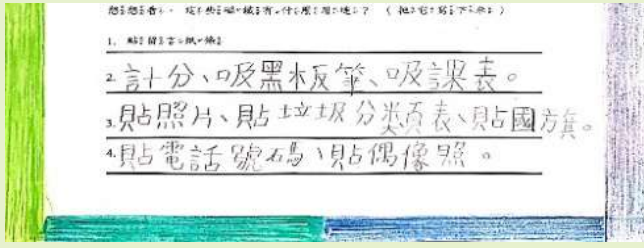 想想看，這些磁鐵有什麼用途？（把它寫下來）
1. 貼留言紙條
2.計分、吸黑板筆、吸課表。
3.貼照片、貼垃圾分类頁表、貼國方箕。
4.貼電話號碼、貼偶像照。